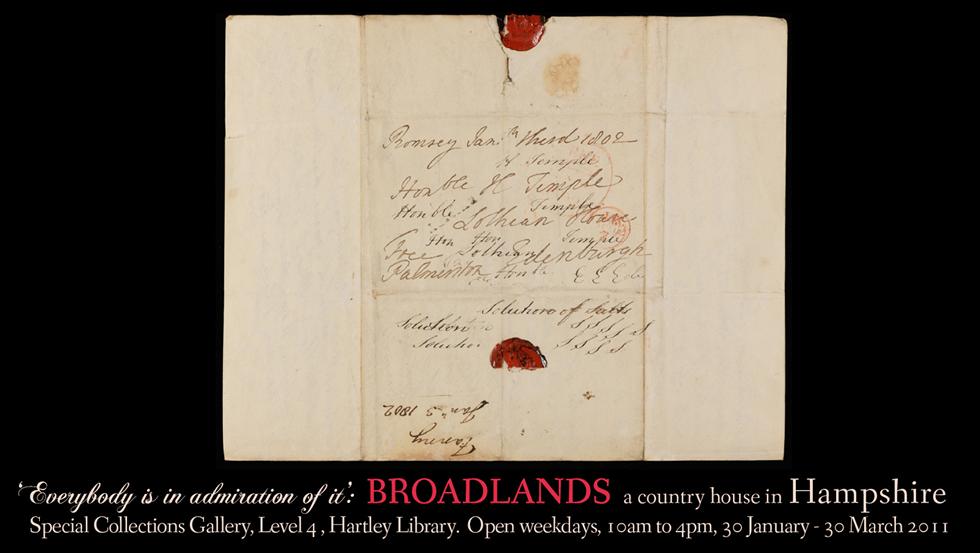 Romsey Jan.ʳʸ third 1802
H Temple
Honble H Temple
Honble Temple
Lothian House
Hon Hon Temple
Free Lothian Edenburgh
Palmerston Honble
Solutions of Salts
Solution S S S S S
Solutio S S S S
Fanny
Janʸ 3 1802
‘Everybody is in admiration of it’: BROADLANDS a country house in Hampshire
Special Collections Gallery, Level 4 , Hartley Library. Open weekdays, 10am to 4pm, 30 January - 30 March 2011